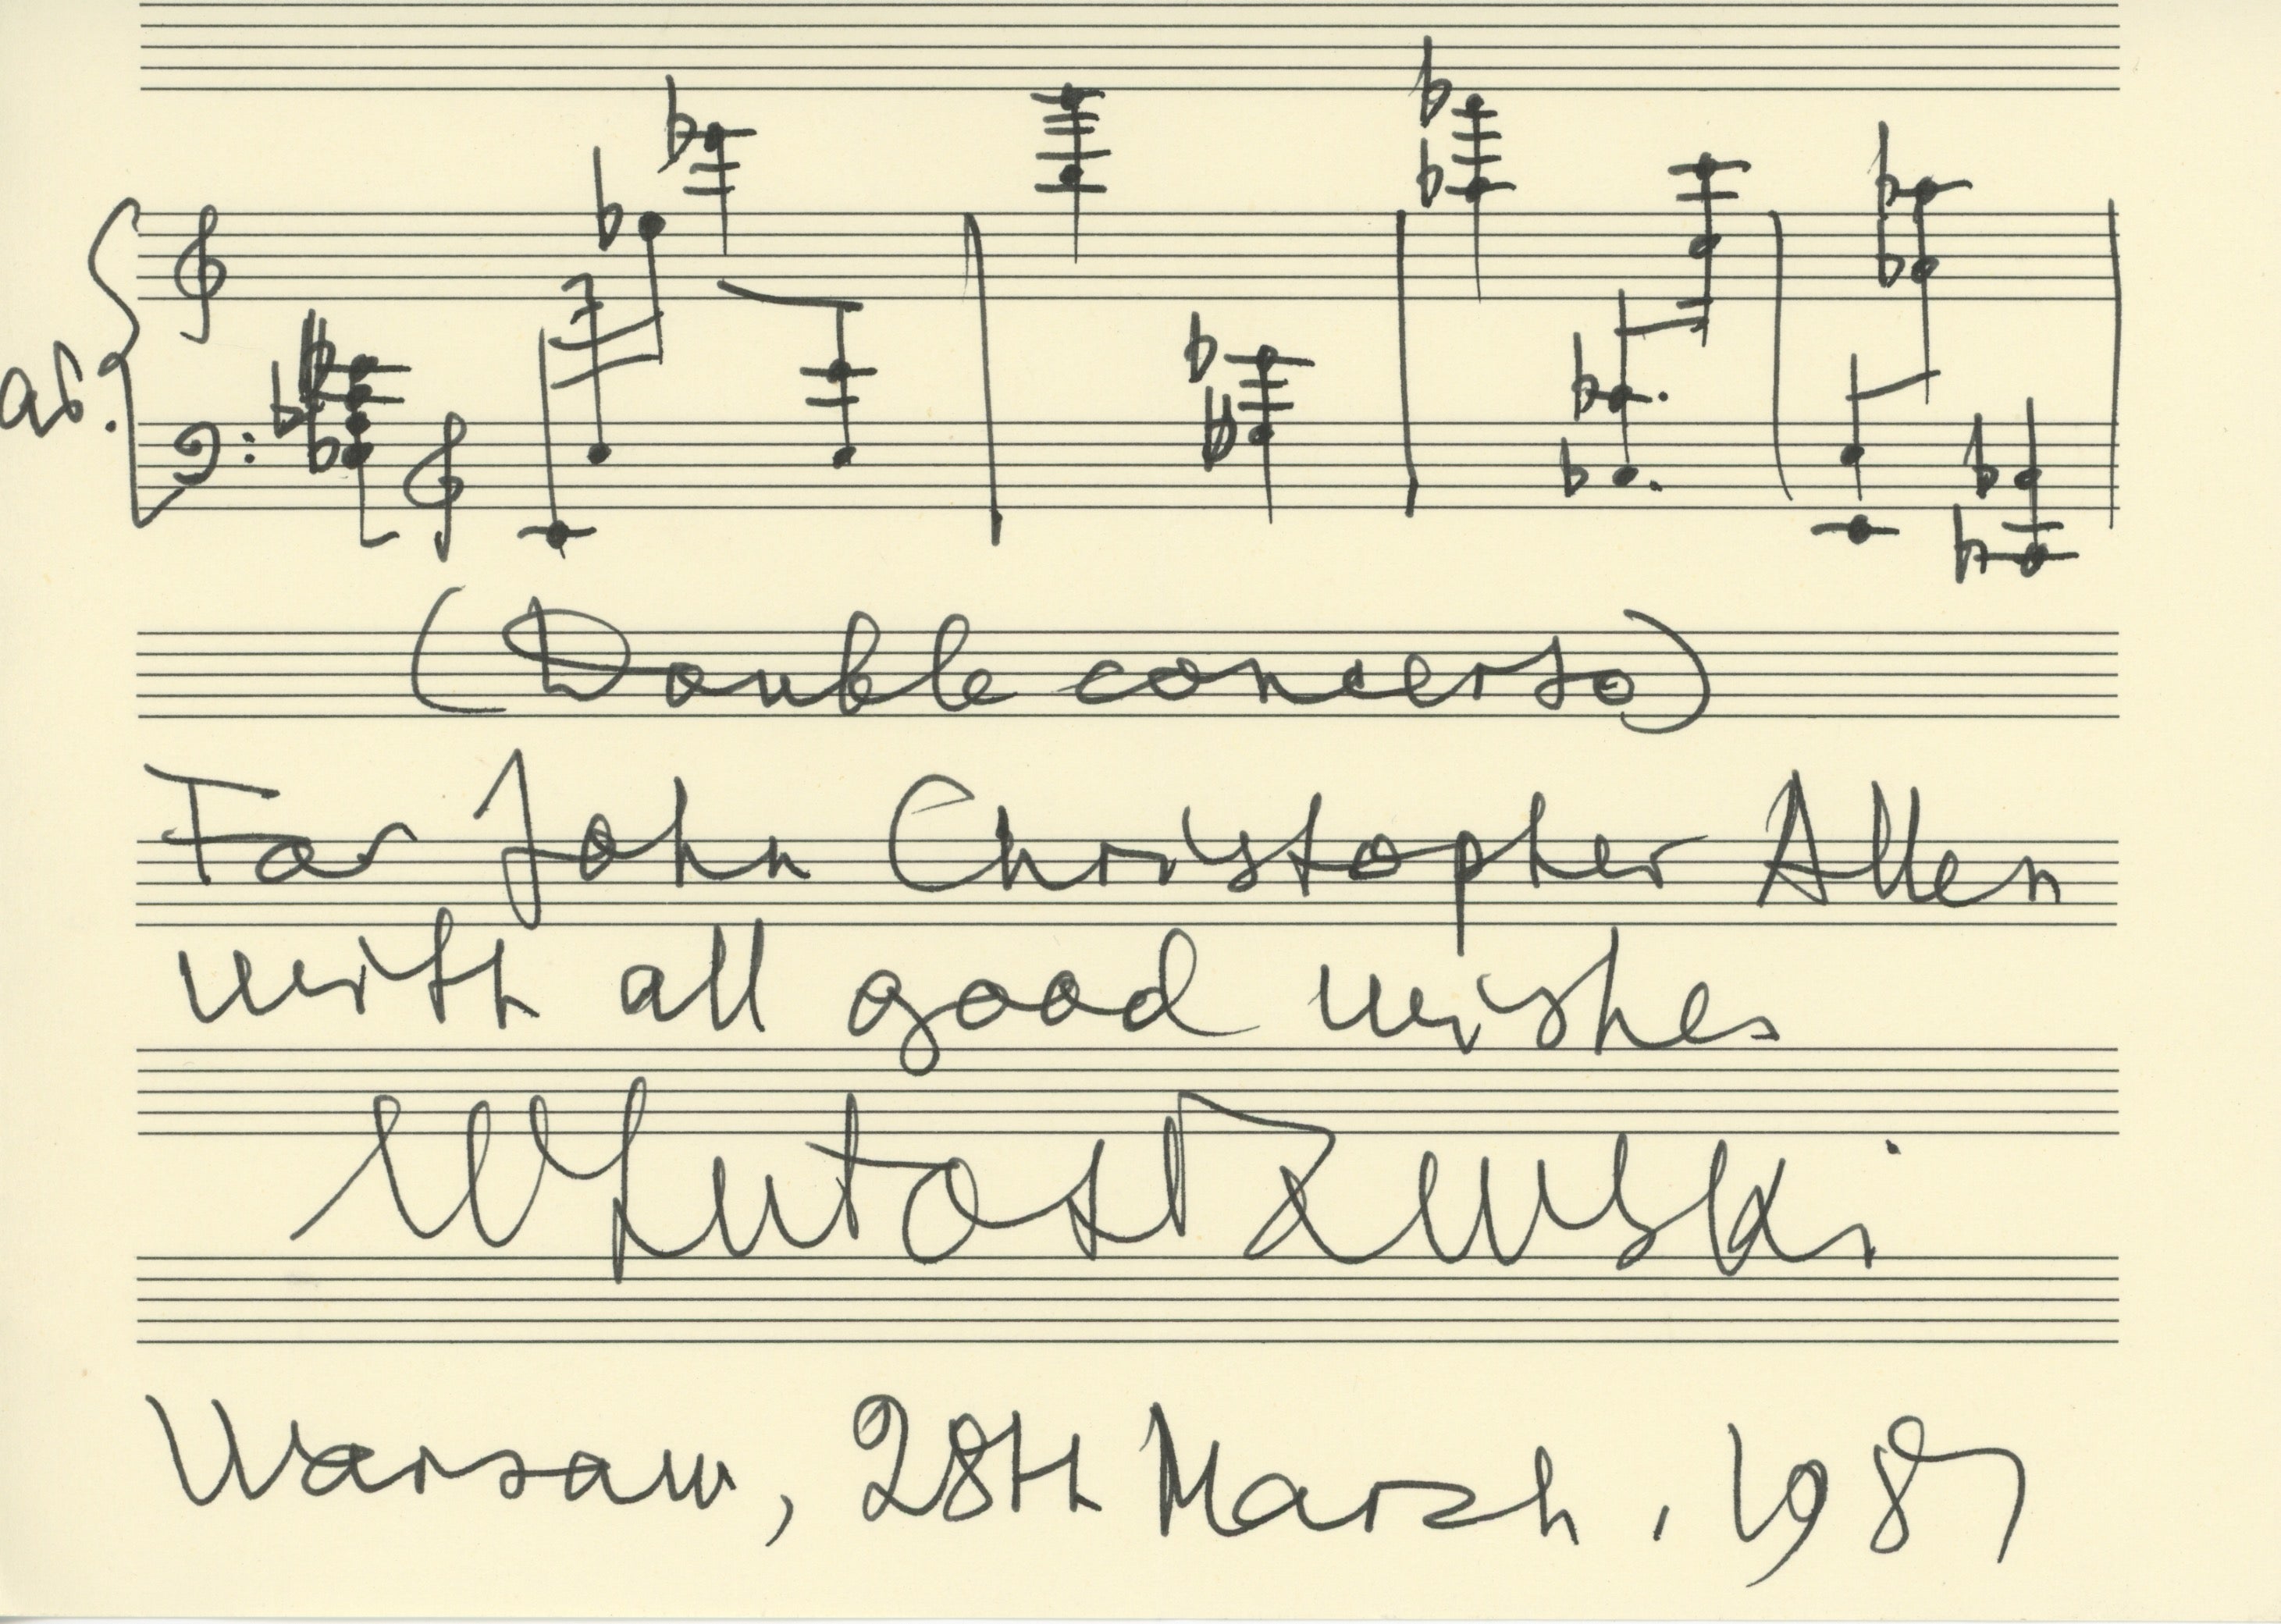 (Double concerto)
For John Christopher Allen
with all good wishes
WLutosławski
Warsaw, 28th March, 1987